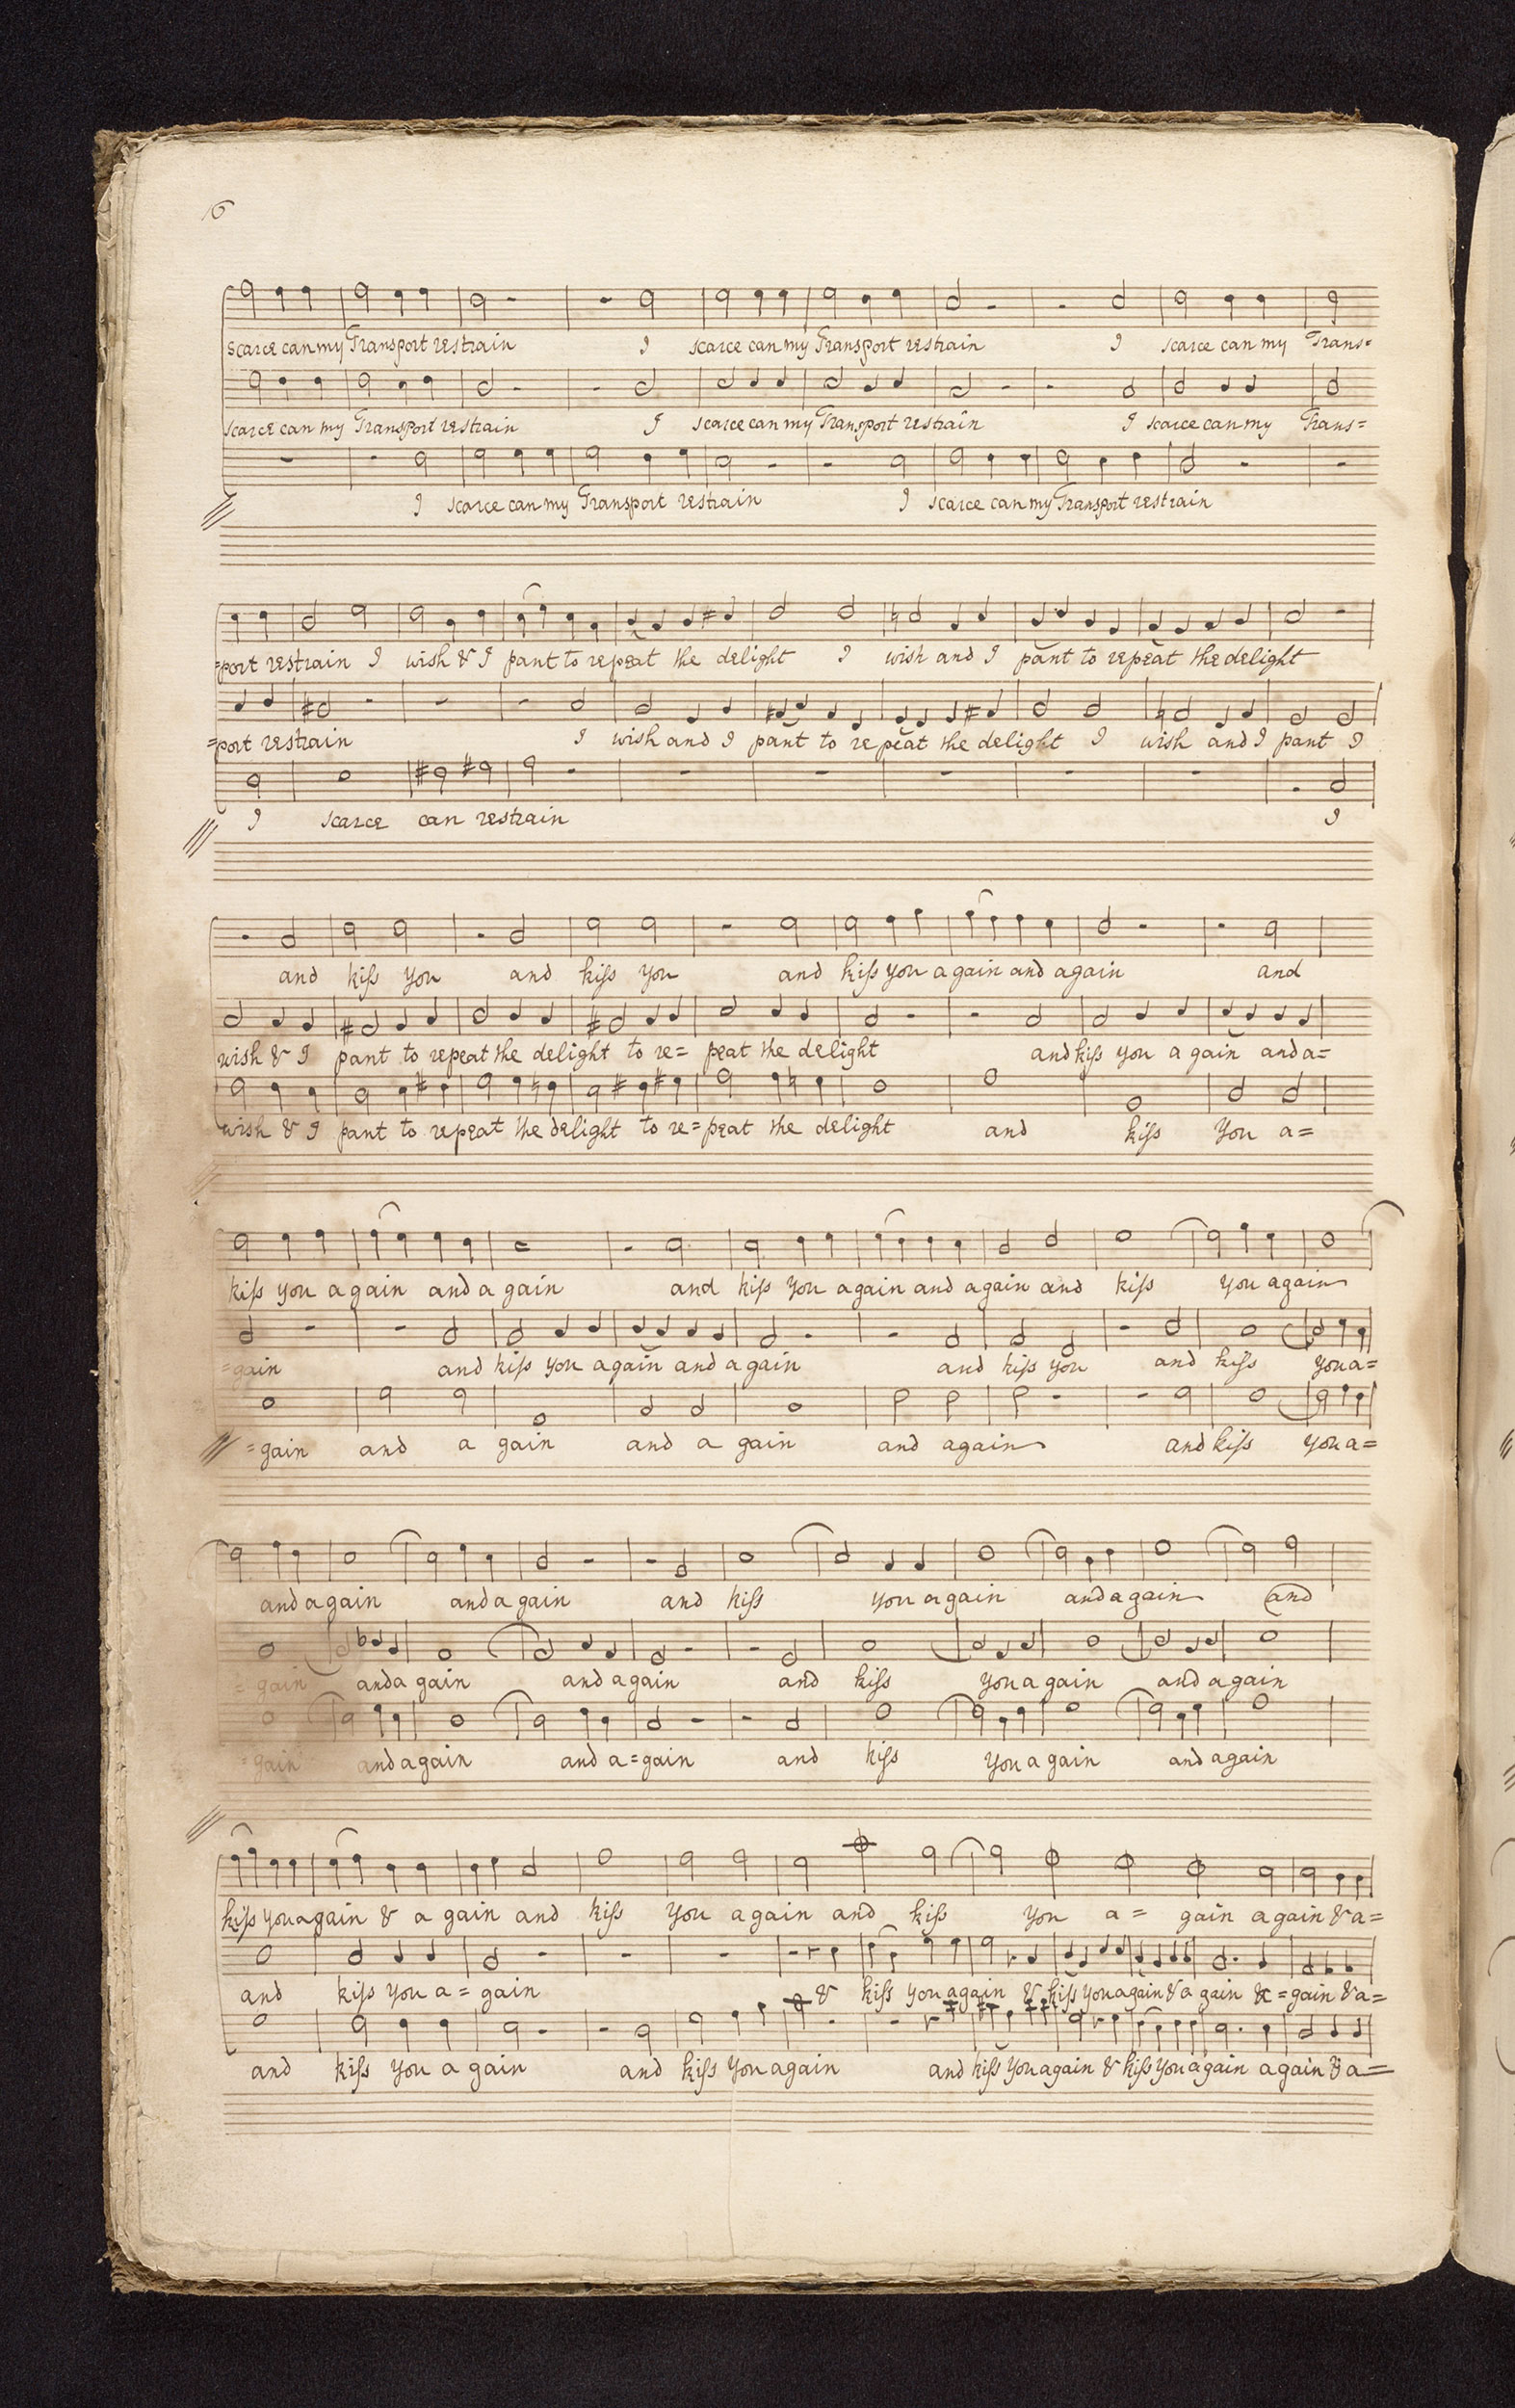 16
scarce can my Transport restrain I scarce can my Transport restrain I scarce can my Trans=
scarce can my Transport restrain I scarce can my Transport restrain I scarce can my Trans=
I scarce can my Transport restrain I scarce can my Transport restrain
=port restrain I wish & I pant to repeat the delight I wish and I pant to repeat the delight
=port restrain I wish and I pant to repeat the delight I wish and I pant I
I scarce can restrain I
and kiſs you and kiſs you and kiſs you again and again and
wish & I pant to repeat the delight to re= peat the delight and kiſs you a gain and a=
wish & I pant to repeat the delight to re= peat the delight and kiſs you a=
kiſs you a gain and a gain and kiſs you again and again and kiſs you again
=gain and kiſs you again and again and kiſs you and kiſs you a=
=gain and a gain and a gain and again and kiſs you a=
and a gain and a gain and kiſs you again and again and
=gain and a gain and again and kiſs you a gain and again
=gain and again and a=gain and kiſs you a gain and again
kiſs you again & a gain and kiſs you again and kiſs you a= gain again & a=
and kiſs you a= gain & kiſs you again & kiſs you again & a gain &=gain & a=
and kiſs you a gain and kiſs you again and kiſs you again & kiſs you again again & a=